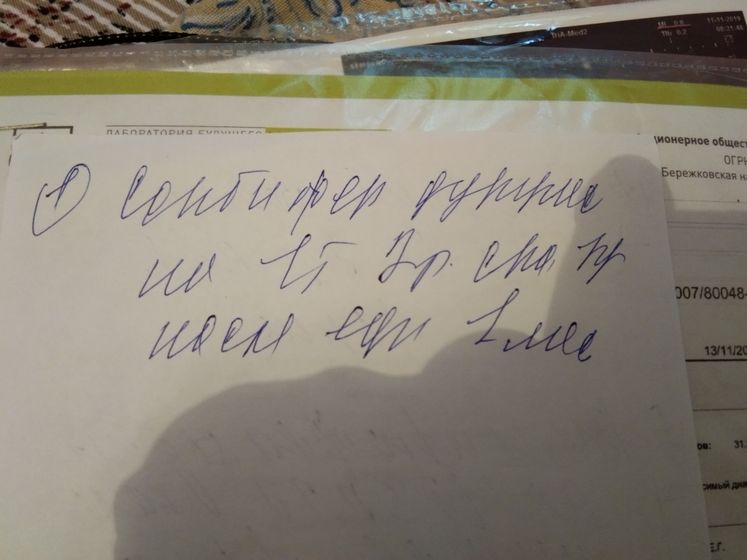 TriA-Med2
MI 0.8
TIb 0.2
11-11-2019
08:21:48
ЛАБОРАТОРИЯ БУДУЩЕГО
ционерное общест
ОГРН
Бережковская на
① Сорбифер дурулес
по 1т 2р.
после еды 1 мес
007/80048-
13/11/20
ов: 31.
симый диа
Е.Г.